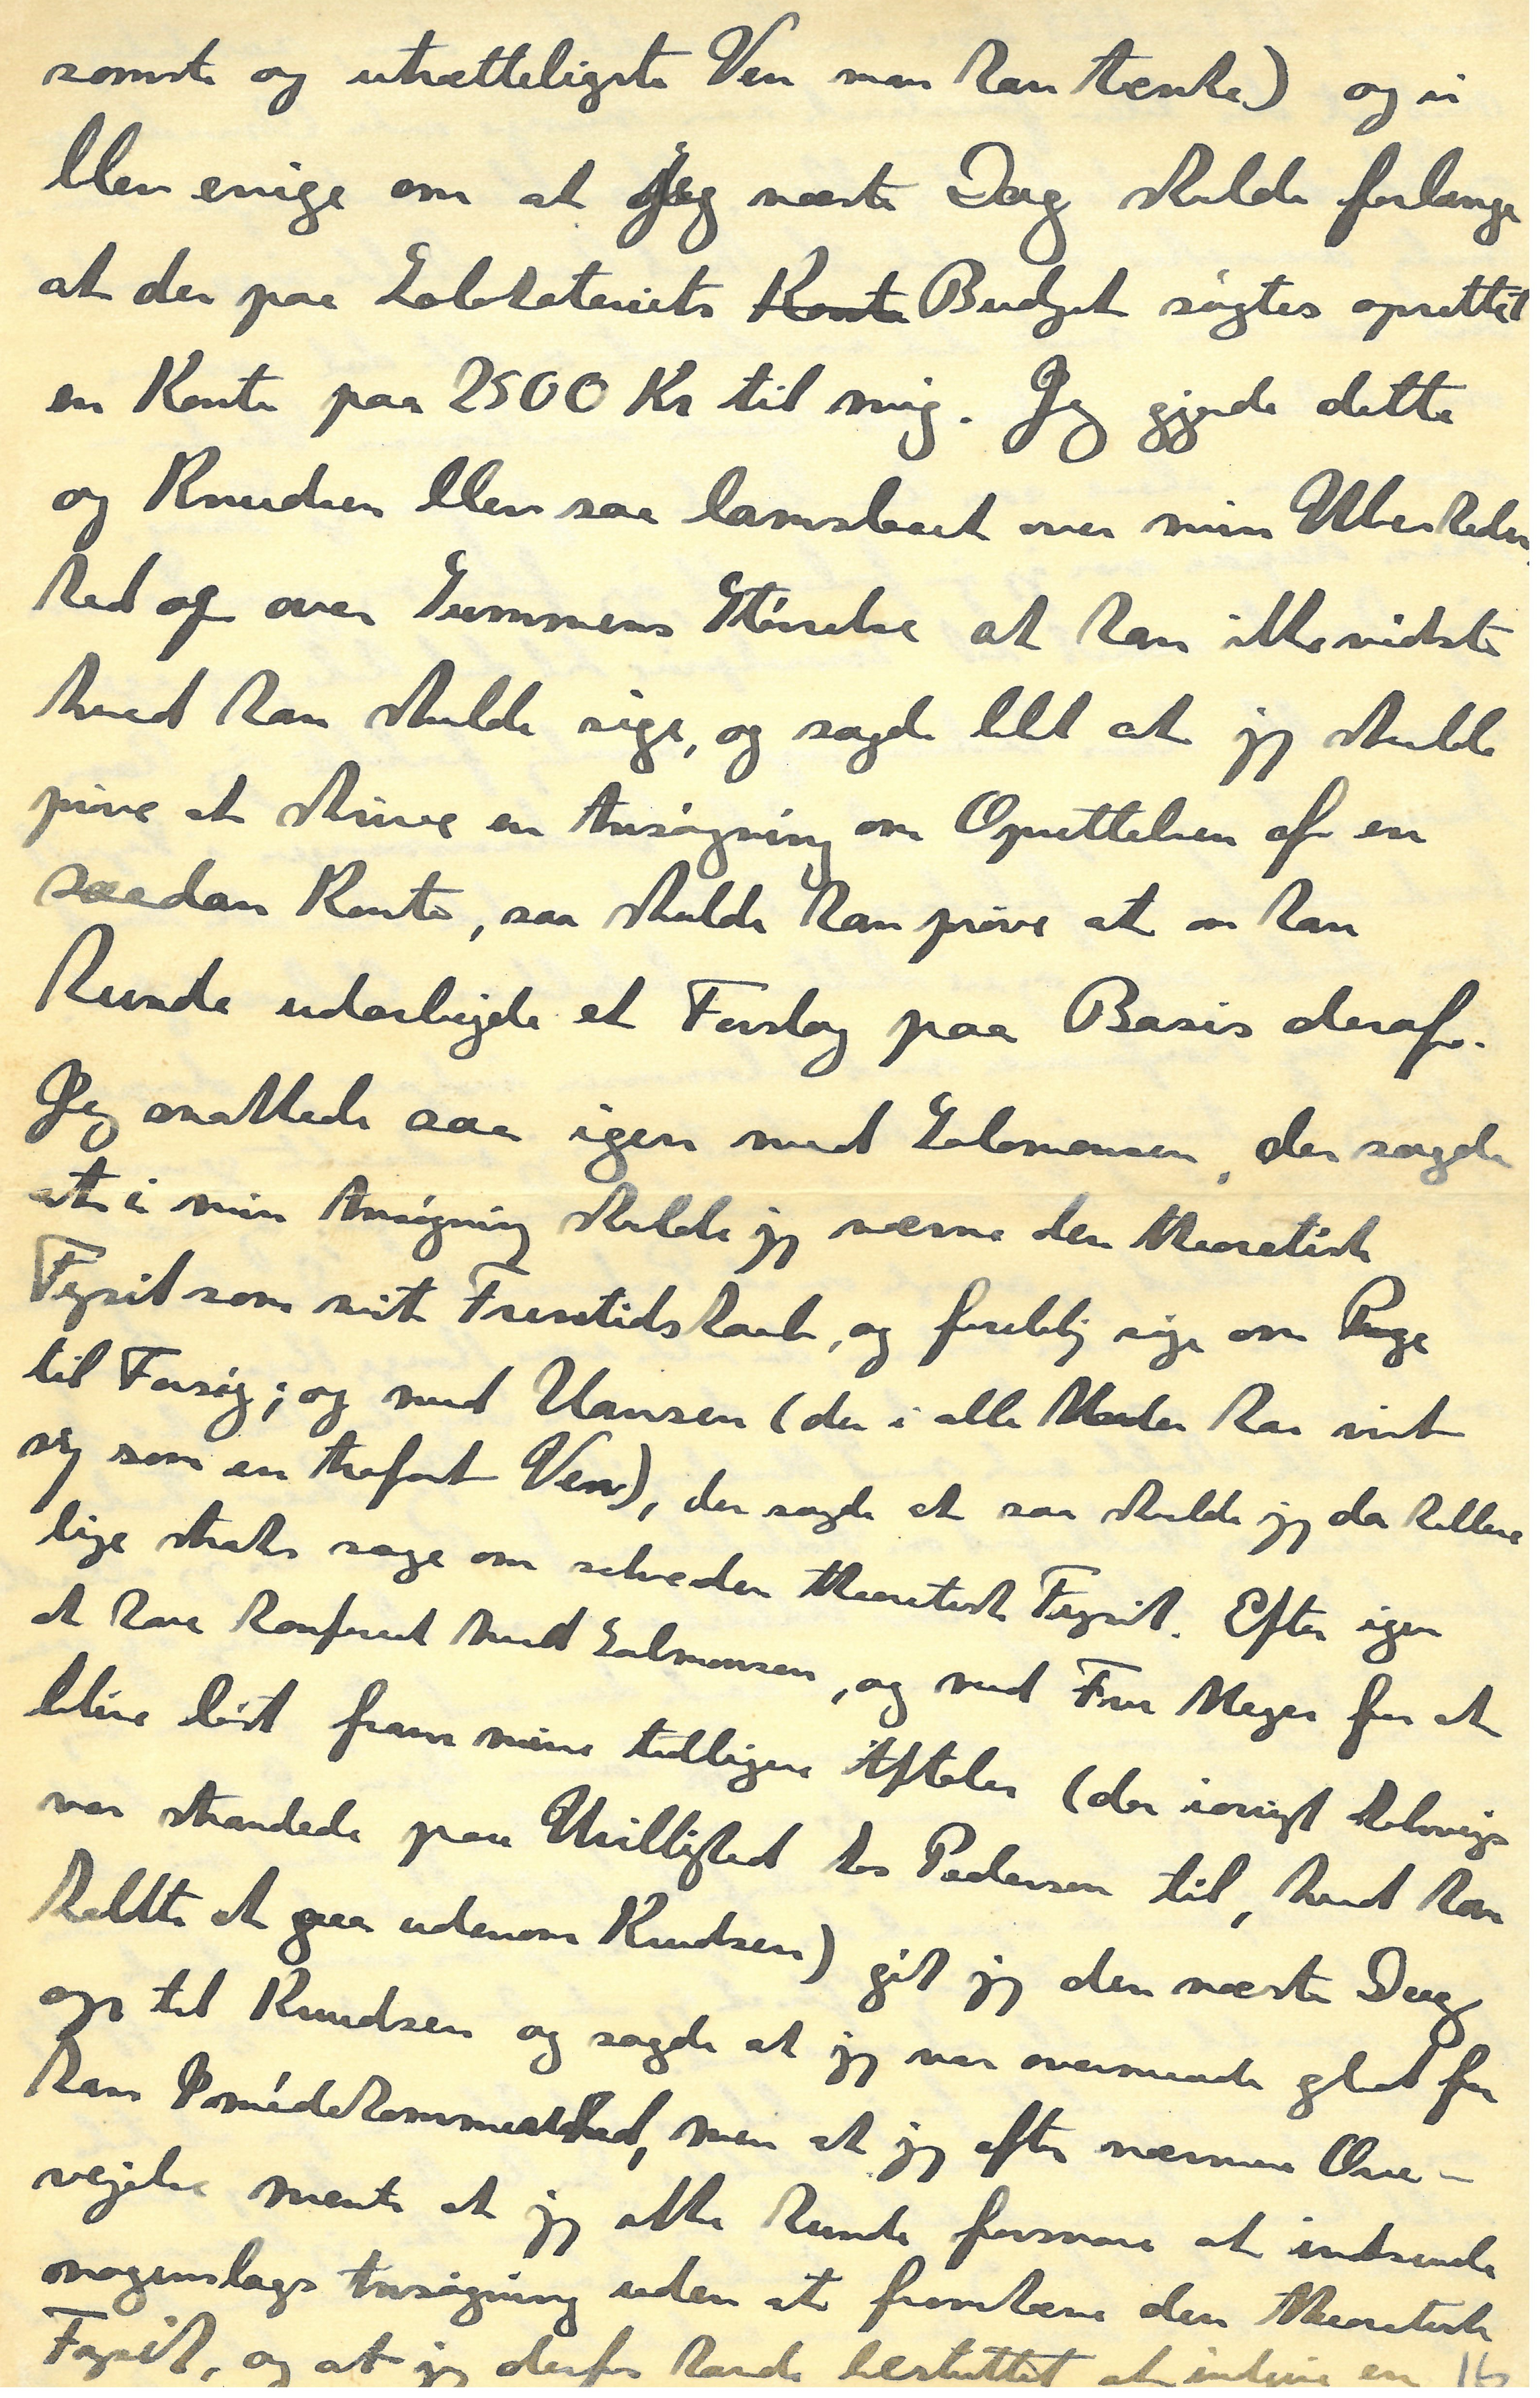 somste og utrætteligste Ven man kan tænke) og vi
blev enige om at Jeg næste Dag skulde forlange
at der paa Laboratoriets Konto Budget søgtes oprettet
en Konto paa 2500 Kr til mig. Jeg gjorde dette
og Knudsen blev saa lamslaaet over min Ubesheden
hed og over Summens Størrelse at han ikke vidste
hvad han skulde sige, og sagde blot at jeg skulde
prøve at skrive en Ansøgning om Oprettelsen af en
saadan Konto, saa skulde han prøve at om han
kunde udarbejde et Forslag paa Basis deraf.
Jeg snakkede saa igen med Salomonsen, der sagde
at i min Ansøgning skulde jeg nævne den theoretisk
Fysik som mit Fremtidshaab, og foreløbig søge om Penge
til Forsøg; og med Hansen (der i alle Maader har vist
sig som en trofast Ven), der sagde at saa skulde jeg da hellere
lige straks søge om selve den theoretisk Fysik. Efter igen
at have konfereret med Salmonsen, og med Frue Meyer for at
blive løst fram mine tidligere Aftaler (der iøvrigt
var strandede paa Uvillighed hos Pedersen til, hvad han
kaldte at gaa udenom Knudsen) gik jeg den næste Dag
op til Knudsen og sagde at jeg var overmaade glad for
hans Imødekommenhed, men at jeg efter nærmere Over-
vejelse mente at jeg ikke kunde forsvare at indsende
nogenslags Ansøgning uden at fremhæve den theoretisk
Fysik, og at jeg derfor havde besluttet at indgive en 16